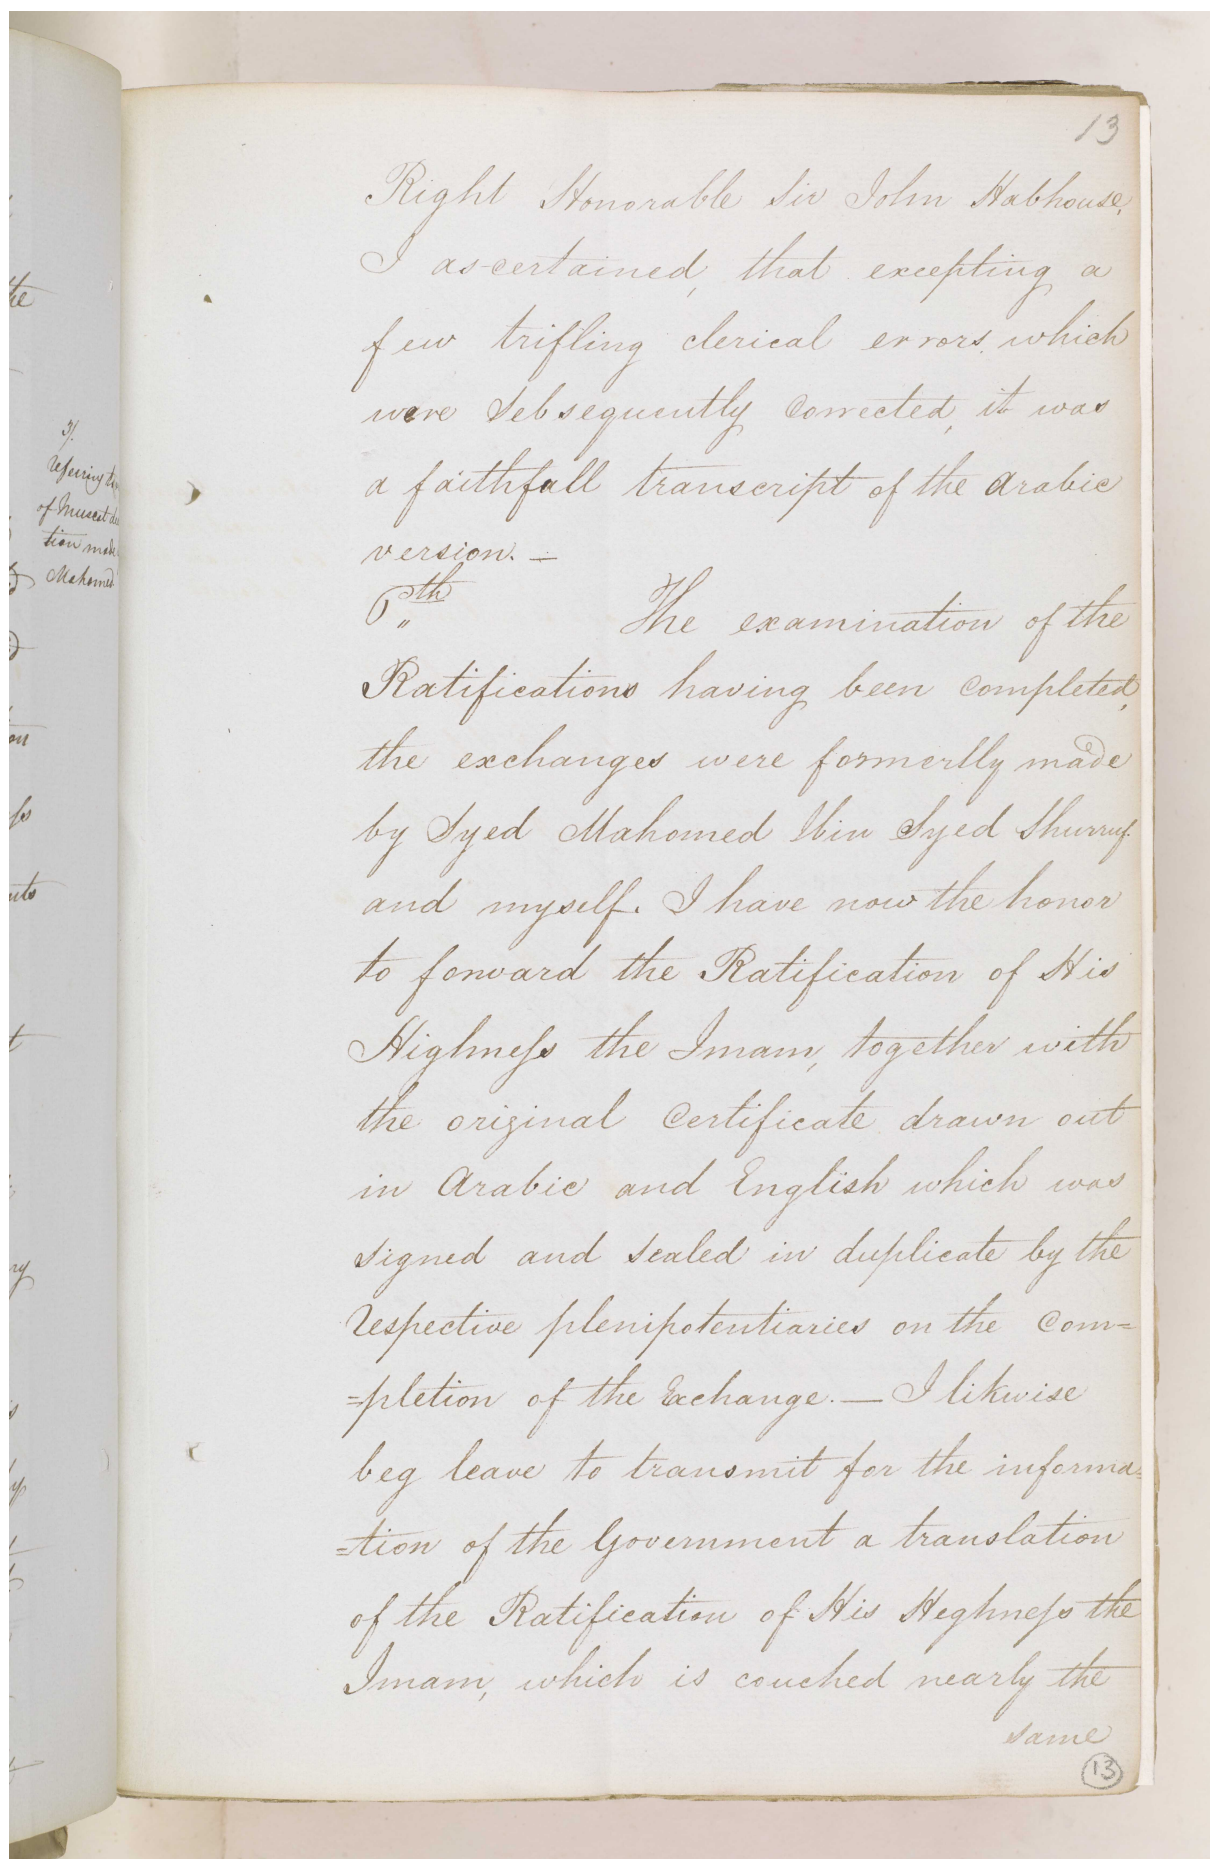 13
Right Honorable Sir John Habhouse,
I ascertained, that excepting a
few trifling clerical errors, which
were Sebsequently Corrected, it was
a faithfull transcript of the Arabic
version. —
6th The examination of the
Ratifications having been Completed,
the exchanges were formerlly made
by Syed Mahomed Ibin Syed Shurruf
and myself. I have now the honor
to forward the Ratification of His
Highness the Imam, together with
the original Certificate drawn out
in Arabic and English which was
signed and sealed in duplicate by the
respective plenipotentiaries on the Com=
=pletion of the Exchange. — I likwise
beg leave to transmit for the informa=
=tion of the Government a translation
of the Ratification of His Heghness the
Imam, which is couched nearly the
same
13
the
3/.
referring
of Muscat
tion made
Mahomed